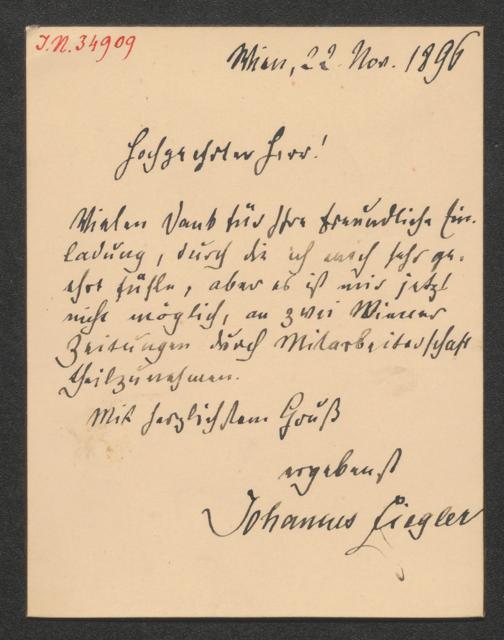 I.N. 34909
Wien, 22. Nov. 1896
Hochgeehrter Herr!
Vielen Dank für Ihre freundliche Ein-
ladung, durch die ich mich sehr ge-
ehrt fühle, aber es ist mir jetzt
nicht möglich, an zwei Wiener
Zeitungen durch Mitarbeiterschaft
theilzunehmen.
Mit herzlichstem Gruß
ergebenst
Johannes Ziegler